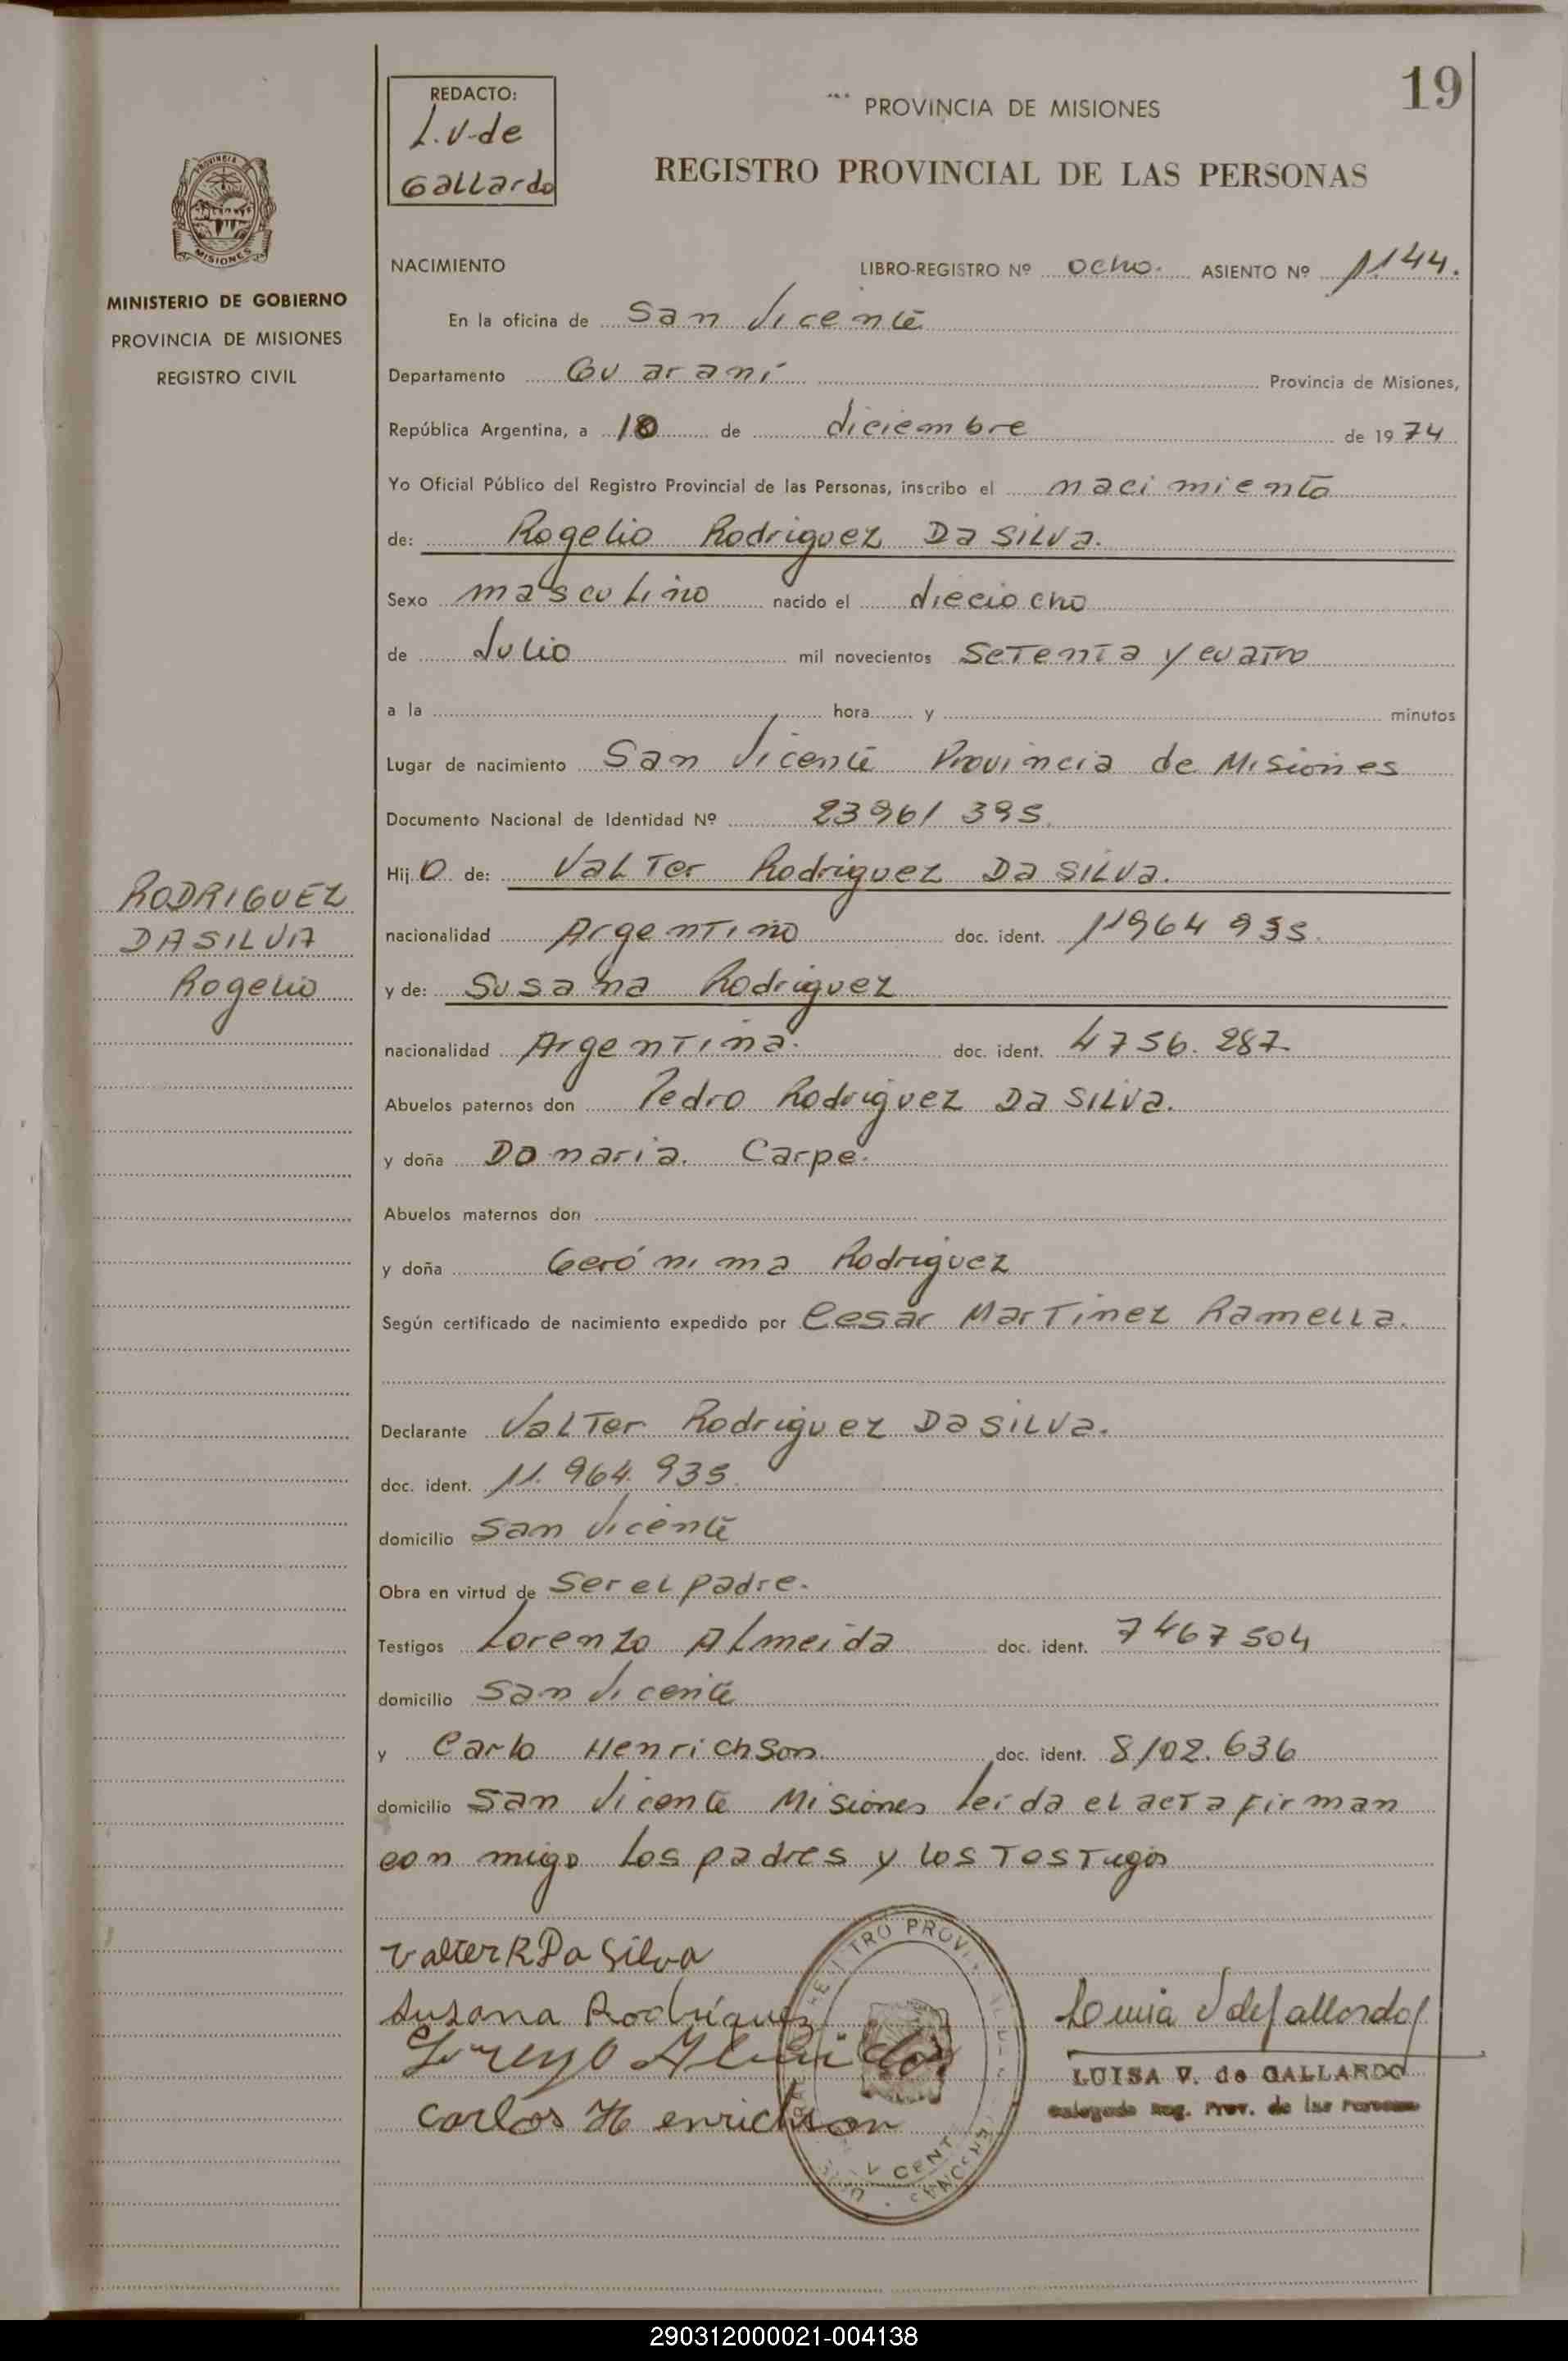 19
REDACTO:
L.V-de
Gallardo
PROVINCIA DE MISIONES
REGISTRO PROVINCIAL DE LAS PERSONAS
PROVINCIA
MISIONES
MINISTERIO DE GOBIERNO
PROVINCIA DE MISIONES
REGISTRO CIVIL
NACIMIENTO LIBRO-REGISTRO Nº ocho. ASIENTO Nº 1144.
En la oficina de San Vicente
Departamento Guaraní Provincia de Misiones,
República Argentina, a 18 de diciembre de 1974
Yo Oficial Público del Registro Provincial de las Personas, inscribo el nacimiento
de: Rogelio Rodriguez Da Silva.
Sexo masculino nacido el dieciocho
de Julio mil novecientos setenta y cuatro
a la hora y minutos
Lugar de nacimiento San Vicente Provincia de Misiones
Documento Nacional de Identidad Nº 23961395
Hijo de: Valter Rodriguez Da Silva.
RODRIGUEZ
DA SILVA
Rogelio
nacionalidad Argentino doc. ident. 11964935
y de: Susana Rodriguez
nacionalidad Argentina. doc. ident. 4756.287
Abuelos paternos don Pedro Rodriguez Da Silva.
y doña Domaria. Carpe.
Abuelos maternos don
y doña Gerónima Rodriguez
Según certificado de nacimiento expedido por Cesar Martinez Ramella.
Declarante Valter Rodriguez Da Silva.
doc. ident. 11.964.935
domicilio San Vicente
Obra en virtud de ser el padre.
Testigos Lorenzo Almeida doc. ident. 7467504
domicilio San Vicente
y Carlo Henrichson doc. ident. 8102.636
domicilio San Vicente Misiones leida el acta firman
con migo los padres y los testigos
Valter R Da Silva
Susana Rodríguez
Lorenzo Almeida
Carlos Henrichson
Luisa V de Gallardo
LUISA V. de GALLARDO
Delegada Reg. Prov. de las Personas
290312000021-004138